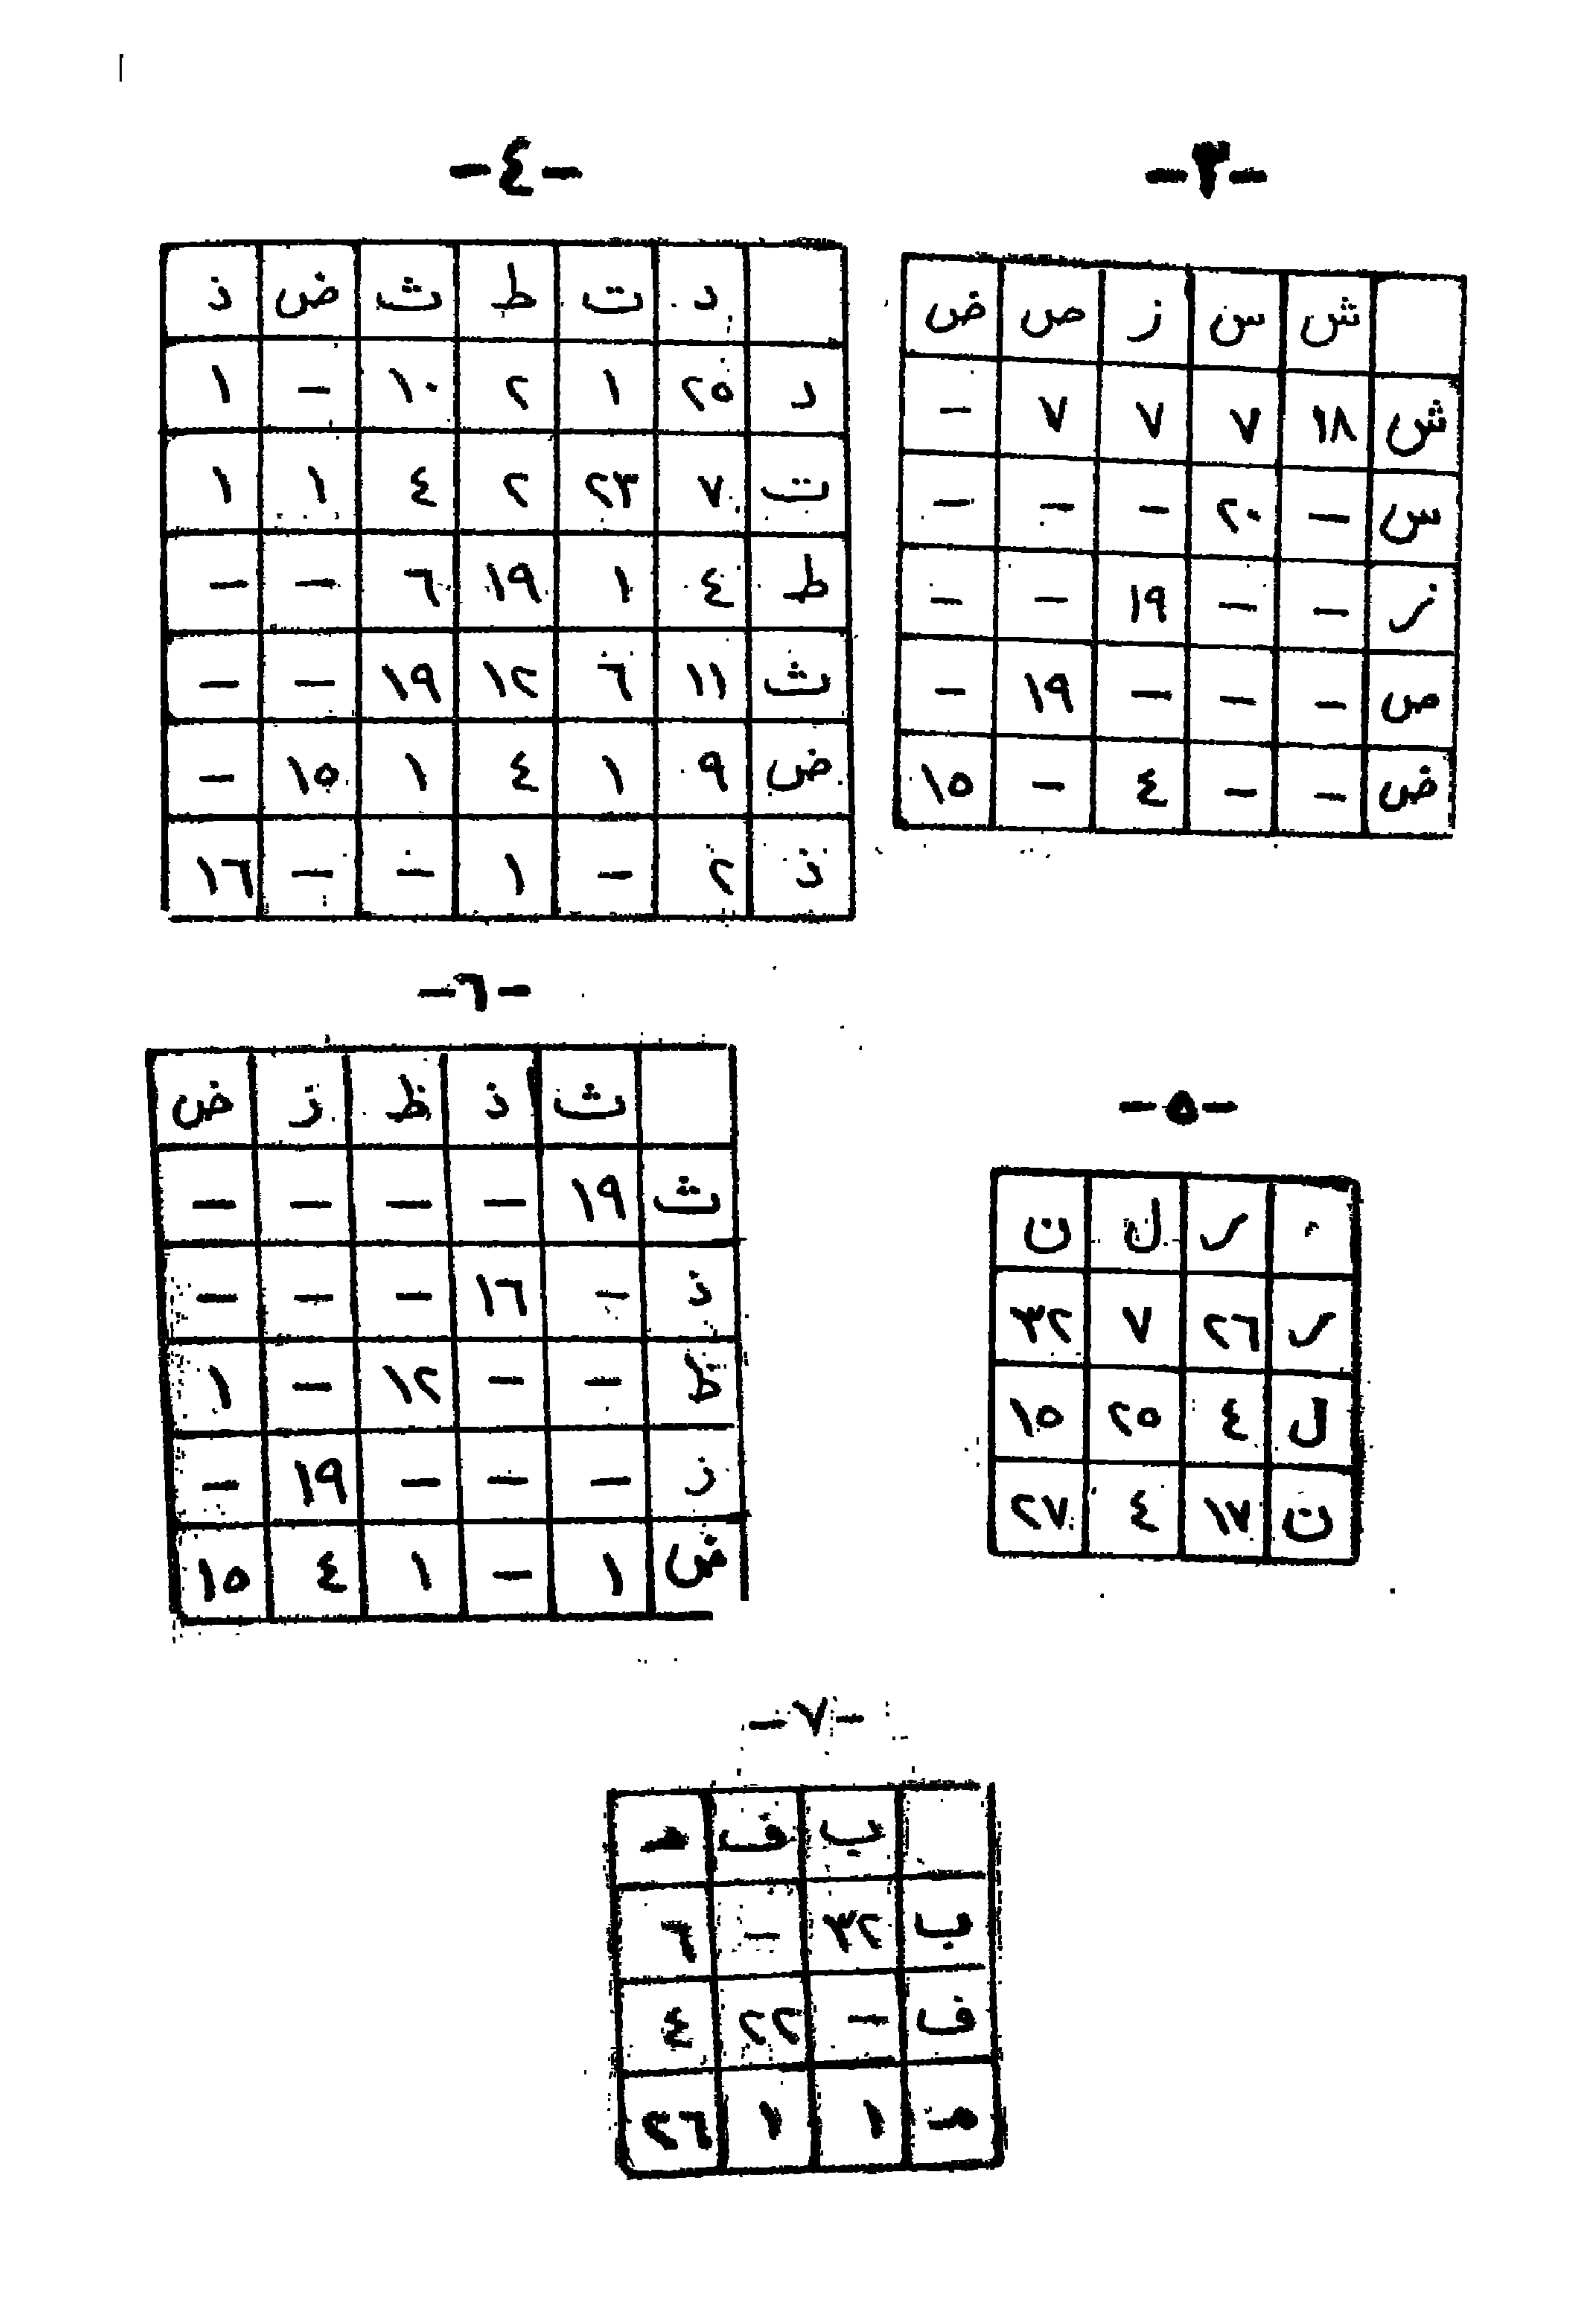 -٣-
ش س ز ص ض
ش ١٨ ٧ ٧ ٧ -
س - ٢٠ - - -
ز - - ١٩ - -
ص - - - ١٩ -
ض - - ٤ - ١٥
-٤-
د ت ط ث ض ذ
د ٢٥ ١ ٢ ١٠ - ١
ت ٧ ٢٣ ٢ ٤ ١ ١
ط ٤ ١ ١٩ ٦ - -
ث ١١ ٦ ١٢ ١٩ - -
ض ٩ ١ ٤ ١ ١٥ -
ذ ٢ - ١ - - ١٦
-٥-
ر ل ن
ر ٢٦ ٧ ٣٢
ل ٤ ٢٥ ١٥
ن ١٧ ٤ ٢٧
-٦-
ث ذ ظ ز ض
ث ١٩ - - - -
ذ - ١٦ - - -
ظ - - ١٢ - ١
ز - - - ١٩ -
ض ١ - ١ ٤ ١٥
-٧-
ب ف هـ
ب ٣٢ - ٦
ف - ٢٢ ٤
هـ ١ ١ ٢٦